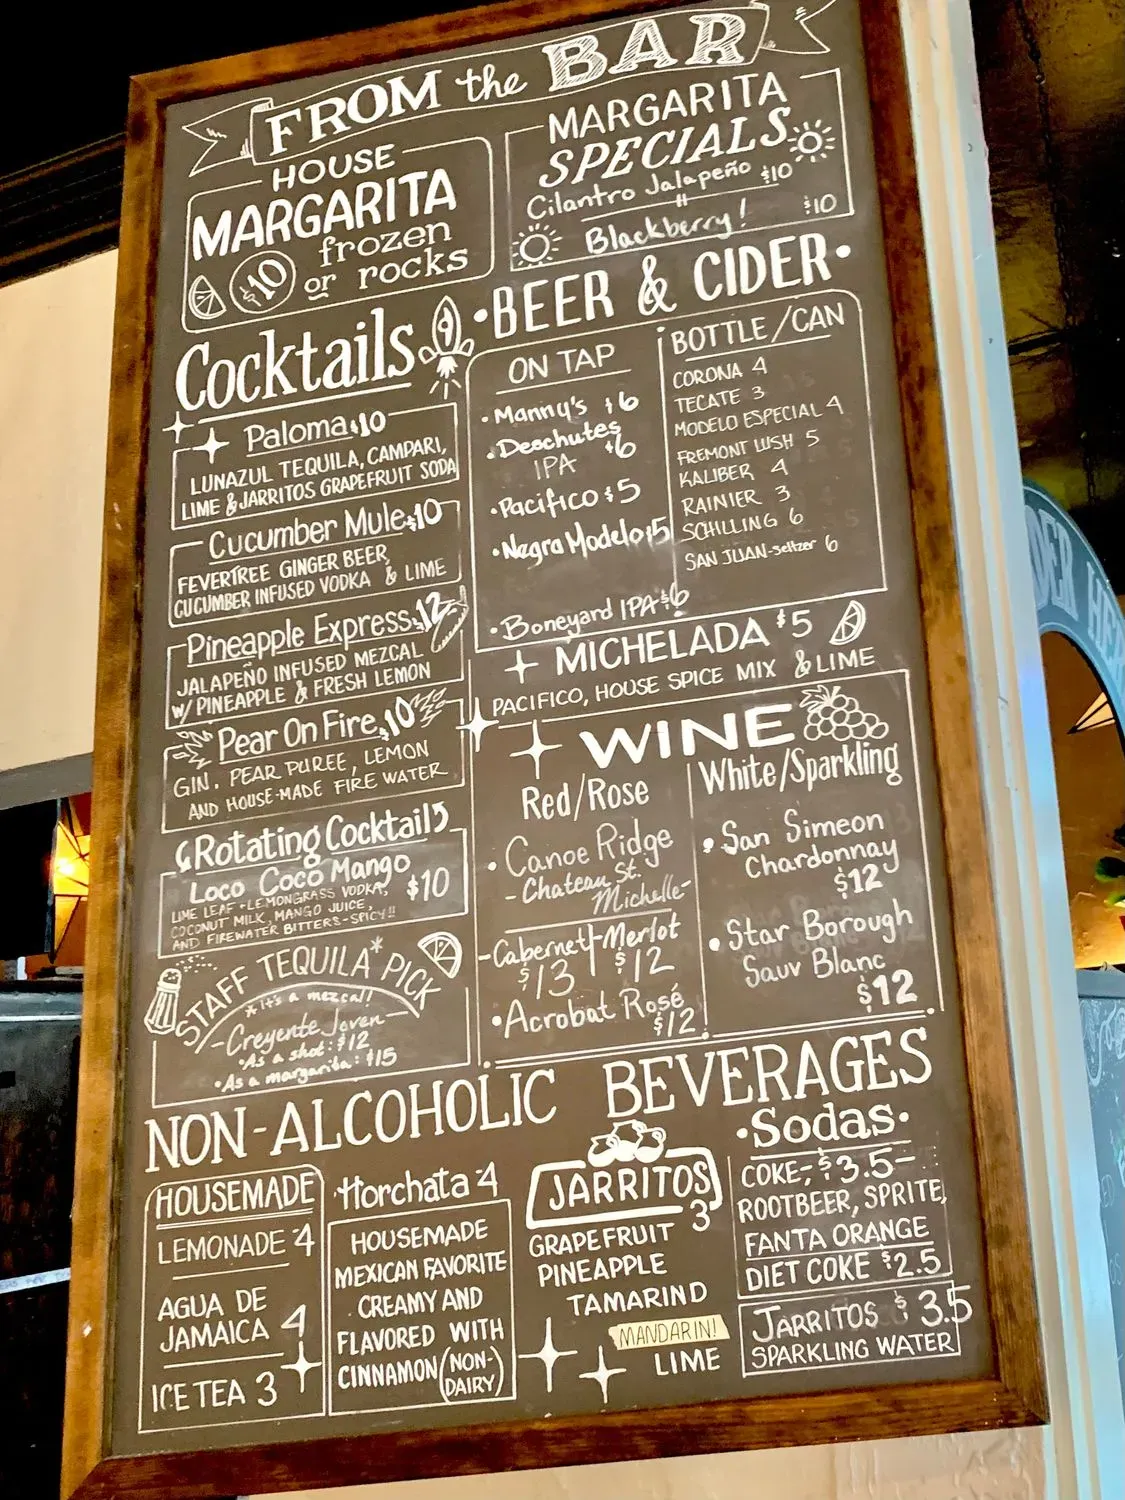 FROM the BAR
HOUSE
MARGARITA
$10
frozen
or rocks
MARGARITA
SPECIALS
Cilantro Jalapeño $10
Blackberry! $10
Cocktails
Paloma $10
LUNAZUL TEQUILA, CAMPARI,
LIME & JARRITOS GRAPEFRUIT SODA
Cucumber Mule $10
FEVERTREE GINGER BEER,
CUCUMBER INFUSED VODKA & LIME
Pineapple Express $12
JALAPEÑO INFUSED MEZCAL
W/ PINEAPPLE & FRESH LEMON
Pear On Fire $10
GIN, PEAR PUREE, LEMON
AND HOUSE-MADE FIRE WATER
Rotating Cocktail
Loco Coco Mango
$10
LIME LEAF + LEMONGRASS VODKA,
COCONUT MILK, MANGO JUICE,
AND FIREWATER BITTERS-SPICY!!
STAFF TEQUILA* PICK
*it's a mezcal!
-Creyente Joven-
•As a shot: $12
•As a margarita: $15
•BEER & CIDER•
ON TAP
•Manny's $6
•Deschutes
IPA $6
•Pacifico $5
•Negra Modelo $5
•Boneyard IPA $6
BOTTLE/CAN
CORONA 4
TECATE 3
MODELO ESPECIAL 4
FREMONT LUSH 5
KALIBER 4
RAINIER 3
SCHILLING 6
SAN JUAN-seltzer 6
MICHELADA $5
PACIFICO, HOUSE SPICE MIX & LIME
WINE
Red/Rose
•Canoe Ridge
-Chateau St.
Michelle-
-Cabernet-Merlot
$13 $12
•Acrobat Rosé
$12
White/Sparkling
•San Simeon
Chardonnay
$12
•Star Borough
Sauv Blanc
$12
NON-ALCOHOLIC BEVERAGES
HOUSEMADE
LEMONADE 4
AGUA DE
JAMAICA 4
ICE TEA 3
Horchata 4
HOUSEMADE
MEXICAN FAVORITE
CREAMY AND
FLAVORED WITH
CINNAMON (NON-
DAIRY)
JARRITOS
3
GRAPEFRUIT
PINEAPPLE
TAMARIND
MANDARIN!
LIME
•Sodas•
COKE,-$3.5-
ROOTBEER, SPRITE,
FANTA ORANGE
DIET COKE $2.5
JARRITOS $3.5
SPARKLING WATER